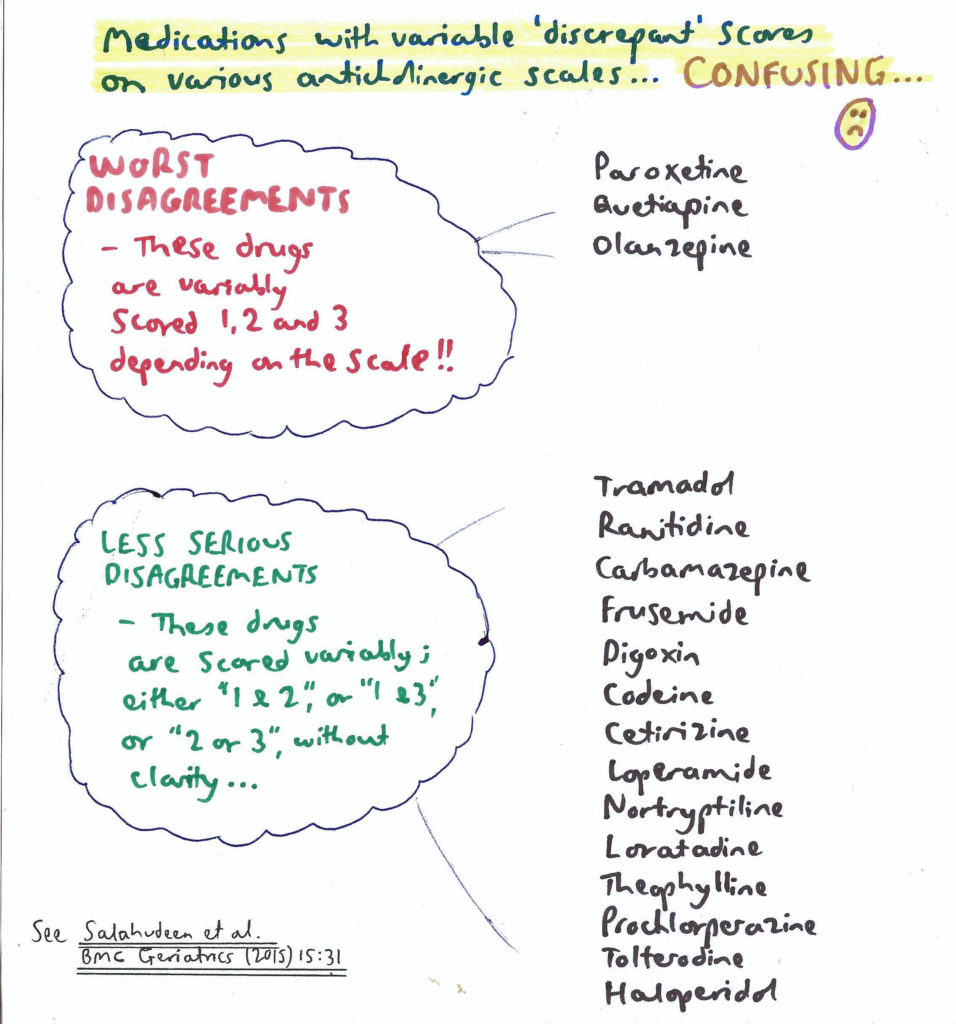 Medications with variable 'discrepant' scores
on various anticholinergic scales... CONFUSING...
WORST
DISAGREEMENTS
- These drugs
are variably
scored 1, 2 and 3
depending on the scale!!
Paroxetine
Quetiapine
Olanzepine
LESS SERIOUS
DISAGREEMENTS
- These drugs
are scored variably;
either "1 & 2", or "1 & 3",
or "2 or 3", without
clarity...
Tramadol
Ranitidine
Carbamazepine
Frusemide
Digoxin
Codeine
Cetirizine
Loperamide
Nortryptiline
Loratadine
Theophylline
Prochlorperazine
Tolterodine
Haloperidol
See Salahudeen et al.
BMC Geriatrics (2015) 15:31